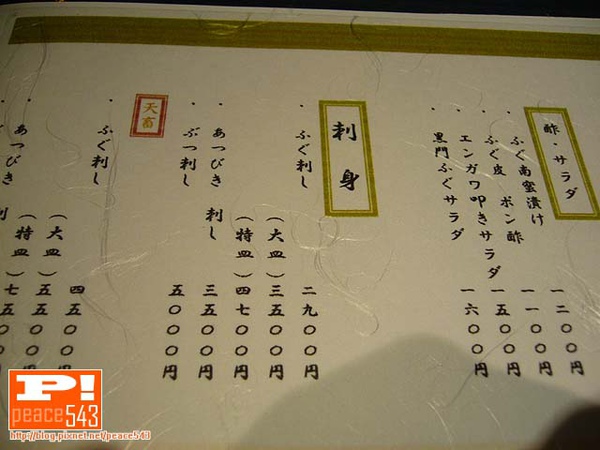 酢・サラダ
・ふぐ南蛮漬け 一二〇〇円
・ふぐ皮 ポン酢 一一〇〇円
・エンガワ叩きサラダ 一五〇〇円
・黒門ふぐサラダ 一六〇〇円
刺身
・ふぐ刺し 二九〇〇円
(大皿)三五〇〇円
(特皿)四七〇〇円
・あつびき 刺し 三五〇〇円
・ぶつ刺し 五〇〇〇円
天畜
・ふぐ刺し 四五〇〇円
(大皿)五五〇〇円
(特皿)七五〇〇円
・あつびき 刺
P!
peace543
http://blog.pixnet.net/peace543